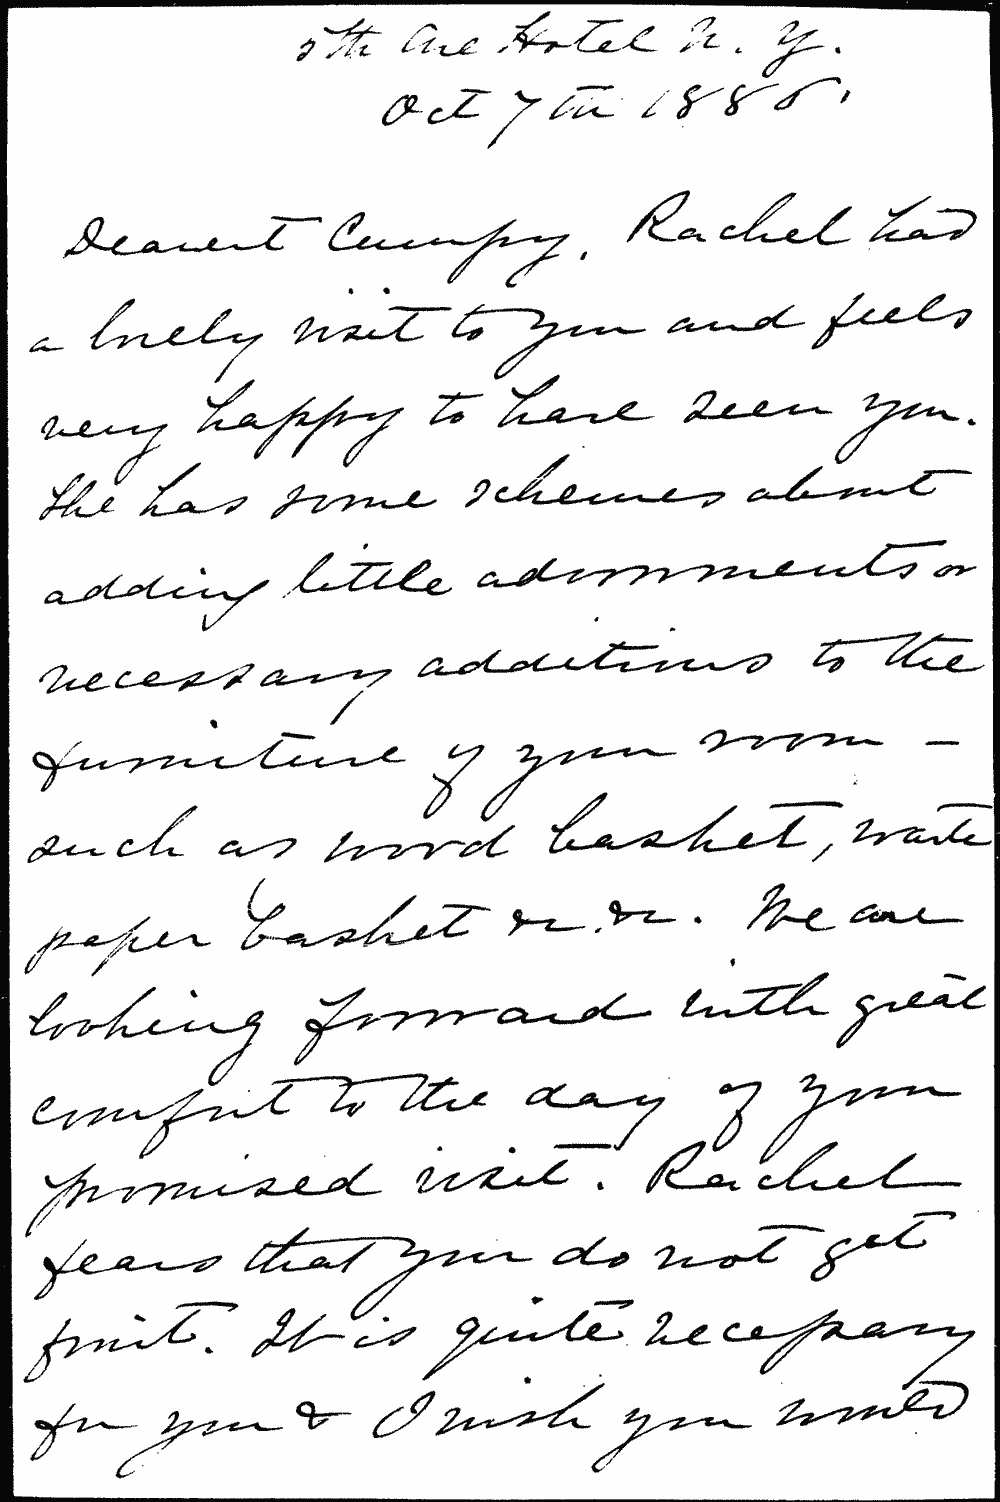 5th Ave Hotel N. Y.
Oct 7th 1885.
Dearest Cumpy, Rachel had
a lovely visit to you and feels
very happy to have seen you.
She has some schemes about
adding little adornments or
necessary additions to the
furniture of your room –
such as wood basket, waste
paper basket &c. &c. We are
looking forward with great
comfort to the day of your
promised visit. Rachel
fears that you do not get
fruit. It is quite necessary
for you & I wish you would